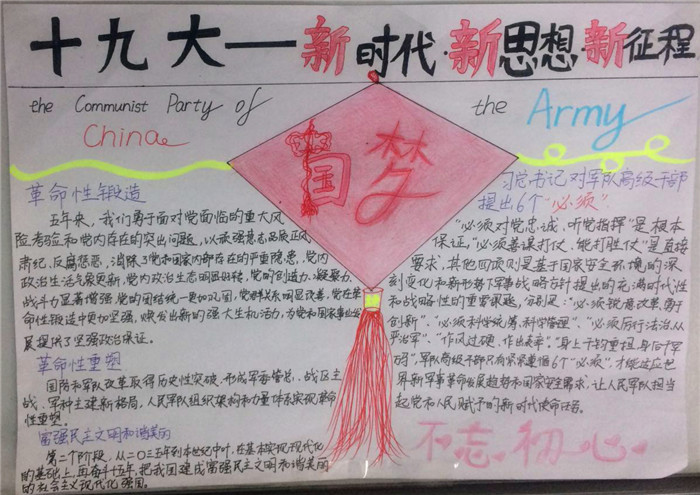 十九大—新时代·新思想·新征程
the Communist Party of
China
the Army
中国梦
革命性锻造
五年来，我们勇于面对党面临的重大风
险考验和党内存在的突出问题，以顽强意志品质正风
肃纪、反腐惩恶，消除了党和国家内部存在的严重隐患，党内
政治生活气象更新，党内政治生态明显好转，党的创造力、凝聚力、
战斗力显著增强，党的团结统一更加巩固，党群关系明显改善，党在革
命性锻造中更加坚强，焕发出新的强大生机活力，为党和国家事业发
展提供了坚强政治保证。
革命性重塑
国防和军队改革取得历史性突破，形成军委管总、战区主
战、军种主建新格局，人民军队组织架构和力量体系实现革命
性重塑。
富强民主文明和谐美丽
第二个阶段，从二〇三五年到本世纪中叶，在基本实现现代化
的基础上，再奋斗十五年，把我国建成富强民主文明和谐美丽
的社会主义现代化强国。
习党书记对军队高级干部
提出6个“必须”
“必须对党忠诚、听党指挥”是根本
保证，“必须善谋打仗、能打胜仗”是直接
要求，其他四项则是基于国家安全环境的深
刻变化和新形势下军事战略方针提出的充满时代性
和战略性的重要课题，分别是：“必须锐意改革、勇于
创新”、“必须科学统筹、科学管理”、“必须厉行法治、从
严治军”、“作风过硬、作出表率”。“身上千钧重担，身后千军万
码”，军队高级干部只有牢牢遵循6个“必须”，才能适应世
界新军事革命发展趋势和国家安全需求，让人民军队担当
起党和人民赋予的新时代使命任务。
不忘初心